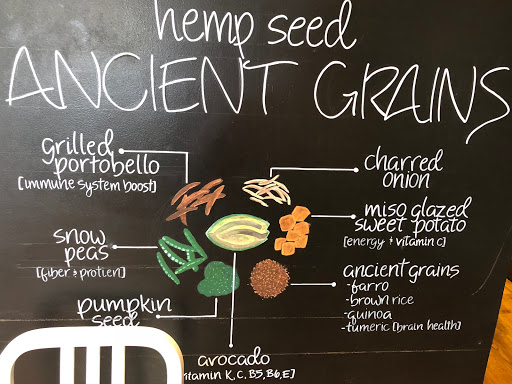 hemp seed
ANCIENT GRAINS
grilled
portobello
[immune system boost]
charred
onion
miso glazed
sweet potato
[energy + vitamin c]
snow
peas
[fiber + protien]
ancient grains
-farro
-brown rice
-quinoa
-tumeric [brain health]
pumpkin
seed
avocado
vitamin K, C, B5, B6, E]